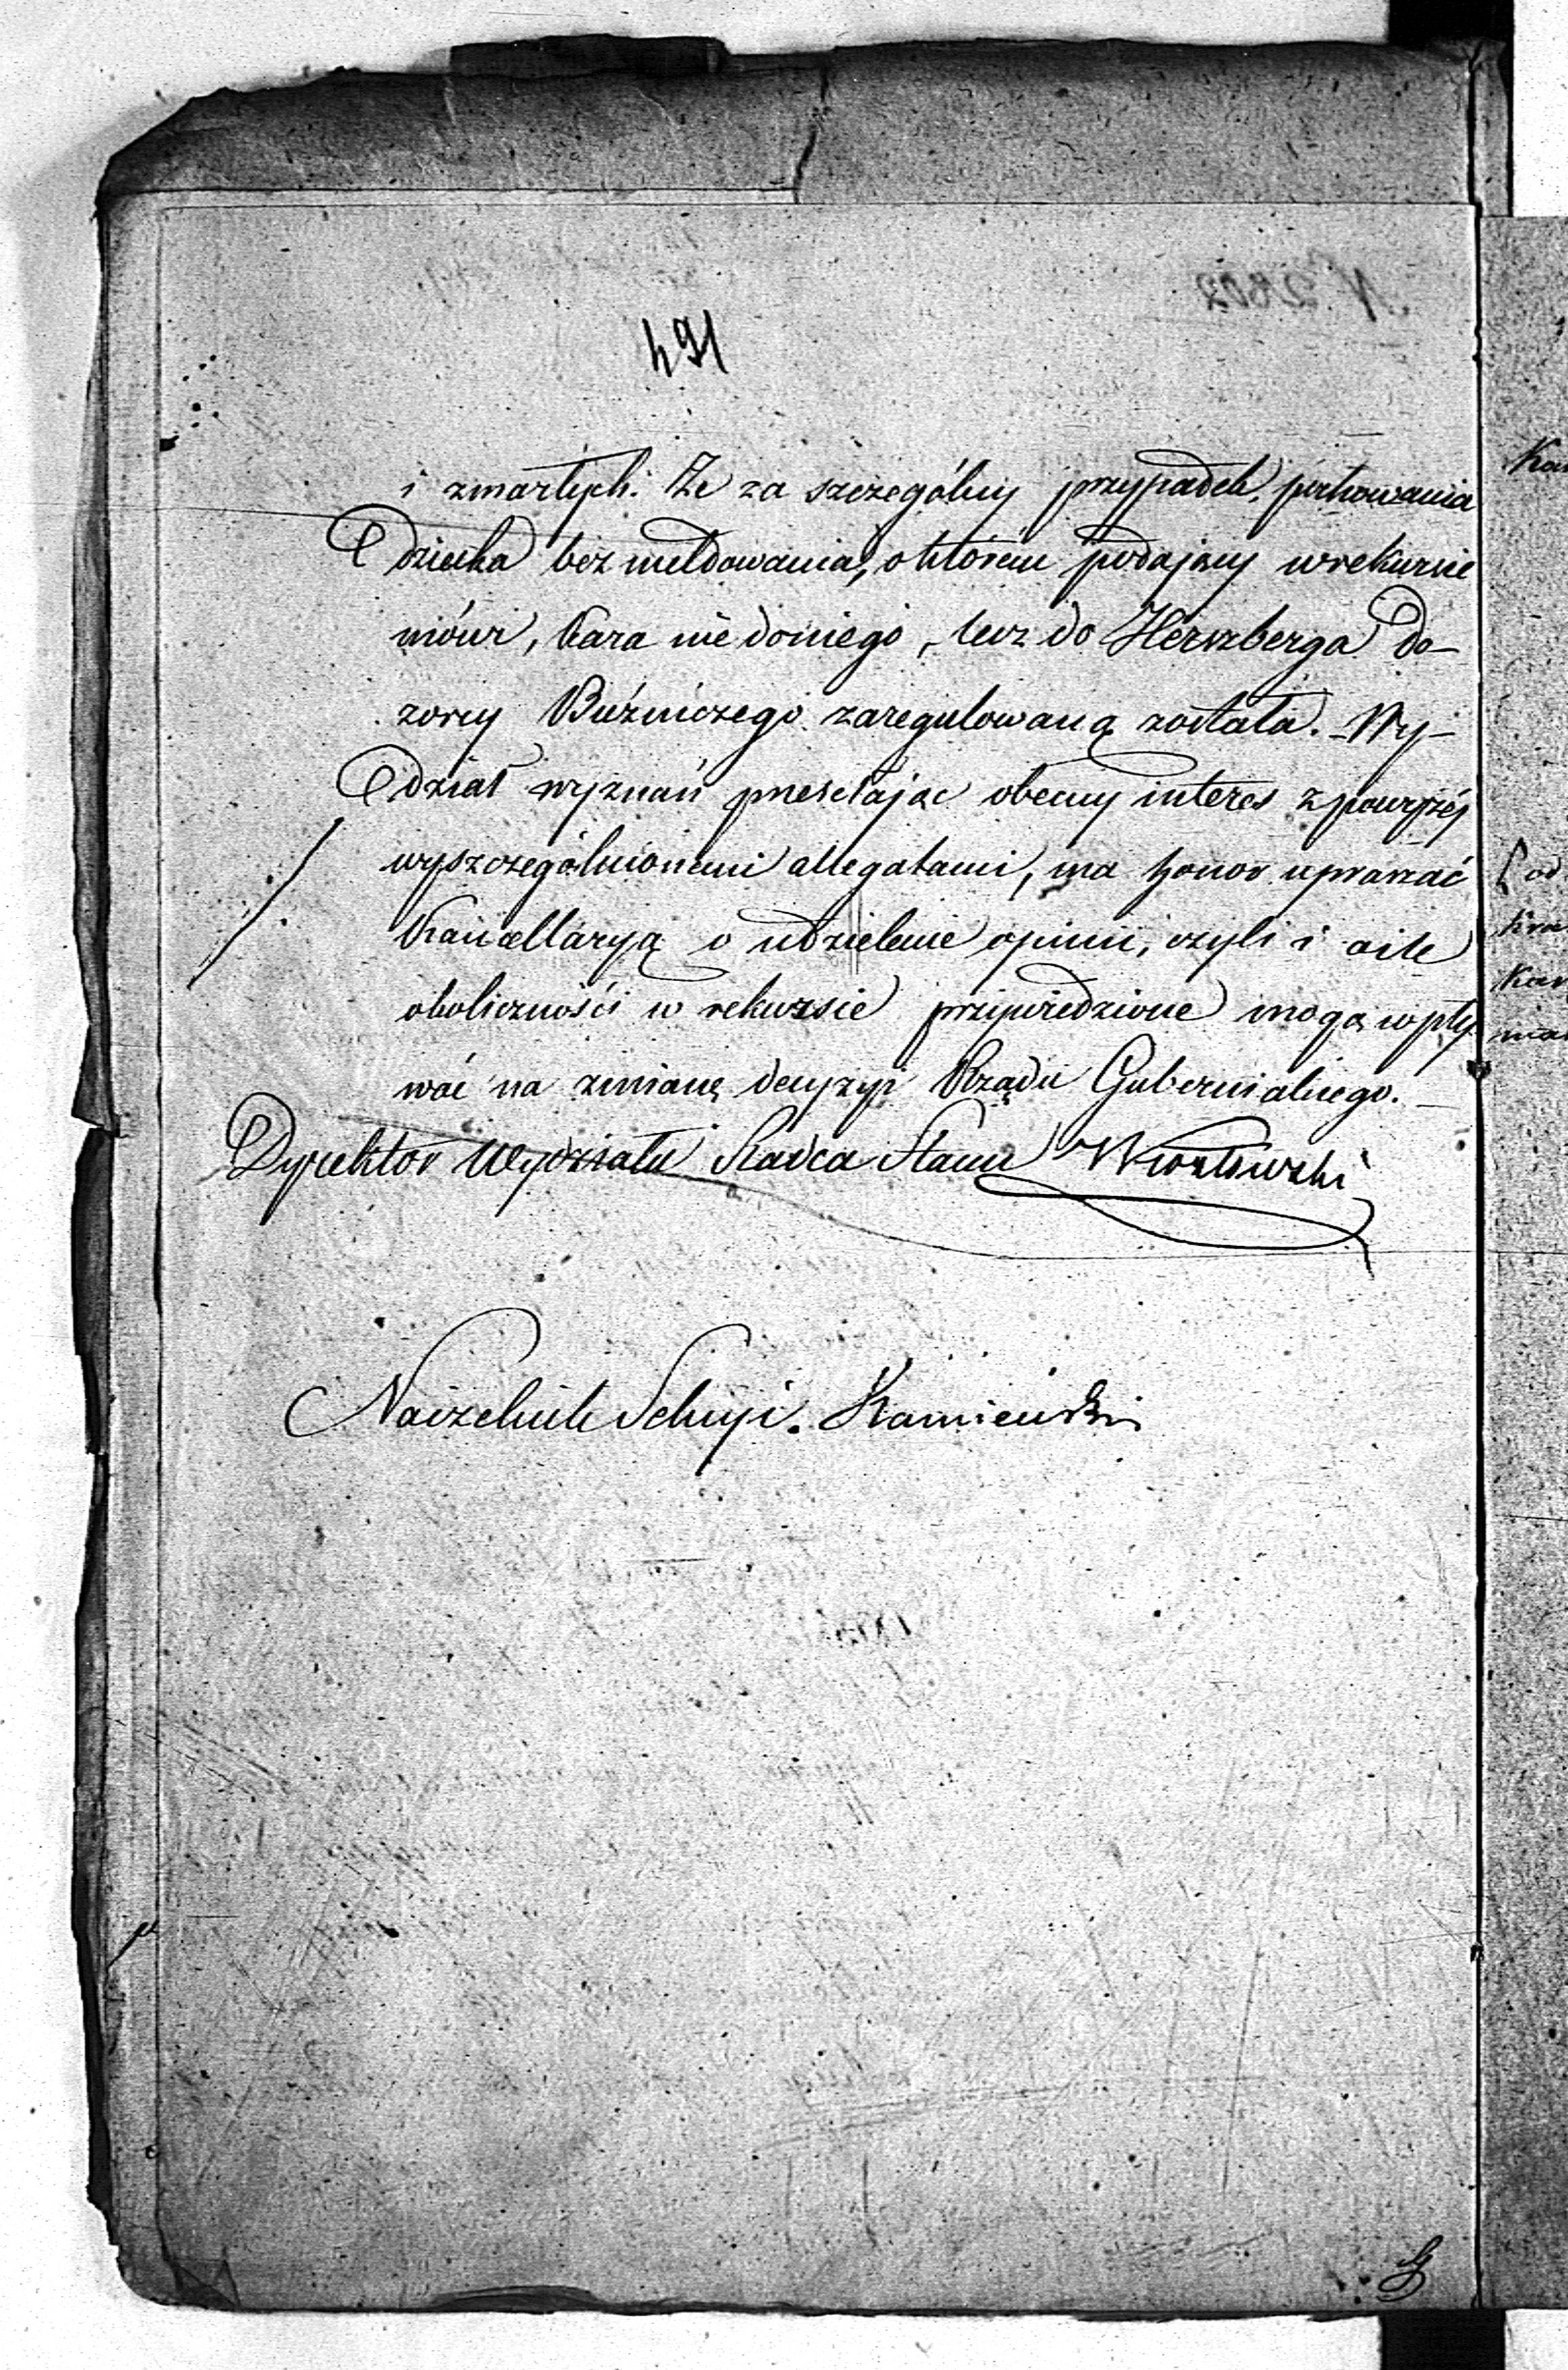 491
i zmarłych. Że za szczególny przypadek pochowania
dziecka bez meldowania, o którem podający w rekursie
mówi, kara nie do niego, lecz do Herszberga do-
zorcy Bóźniczego zaregulowaną została. – Wy-
dział wyznań przesełając obecny interes z powyżéj
wyszczególnionemi allegatami, ma honor upraszać
Kancellaryą o udzielenie opinii, czyli i o ile
okoliczności w rekursie przywiedzione mogą wpły
wać na zmianę decyzyi Rządu Gubernialnego. –
Dyrektor Wydziału Radca Stanu
Naczelnik Sekcyi. Kamieński